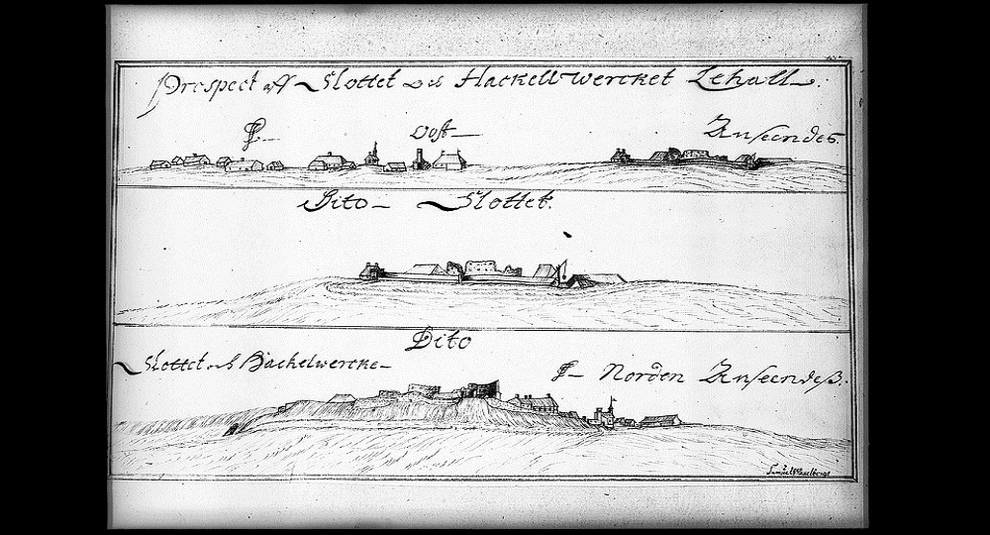 Prospect aff Slottet och Hackellwercket Lehall.
Oost Anseendes.
Dito Slottet.
Dito
Slottet och Backelwercke
Norden Anseendeß.